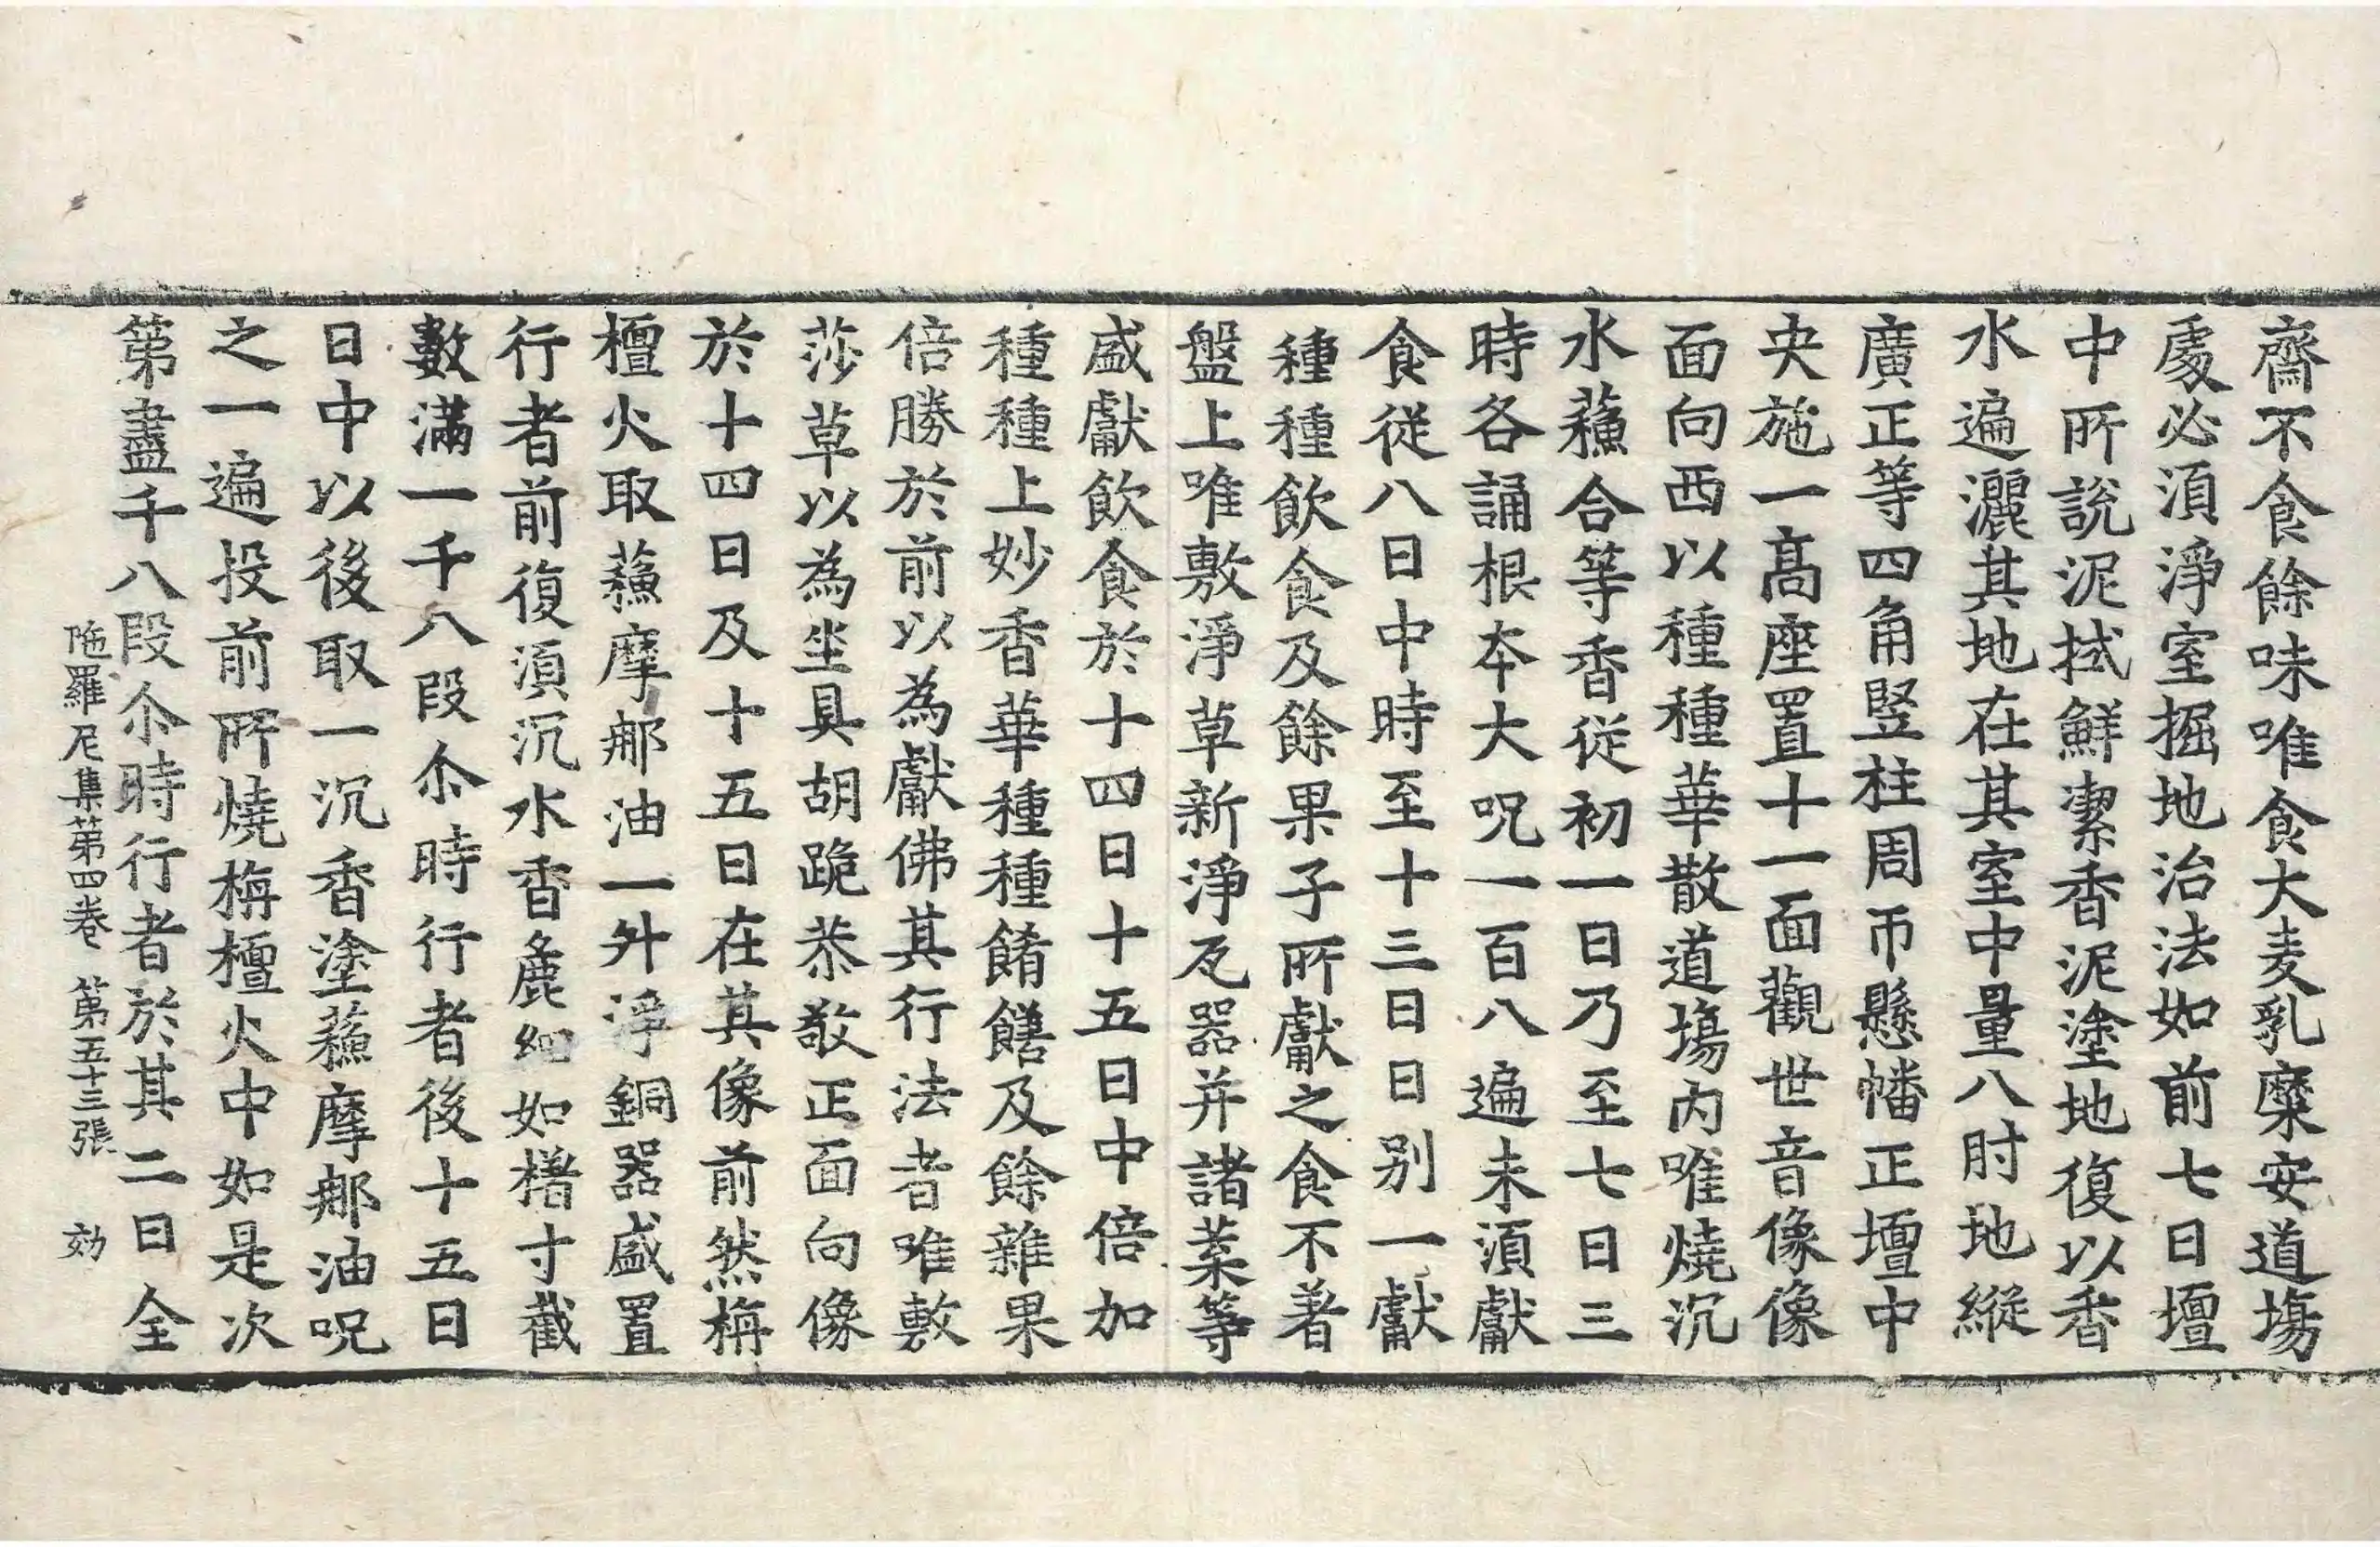 齋不食餘味唯食大麦乳糜安道塲
䖏必湏淨室掘地治法如前七日壇
中所說泥拭鮮潔香泥塗地復以香
水遍灑其地在其室中量八肘地縱
廣正等四角竪柱周帀懸幡正壇中
央施一髙座置十一面觀世音像像
面向西以種種華散道塲內唯燒沉
水蘓合等香從初一日乃至七日三
時各誦根本大呪一百八遍未湏獻
食從八日中時至十三日日别一獻
種種飲食及餘果子所獻之食不著
盤上唯敷淨草新淨瓦器并諸菜等
盛獻飲食於十四日十五日中倍加
種種上妙香華種種餚饍及餘雜果
倍勝於前以為獻佛其行法者唯敷
莎草以為坐具胡跪恭敬正面向像
於十四日及十五日在其像前然栴
檀火取蘓摩那油一升淨銅器盛置
行者前復湏沉水香麁細如櫡寸截
數滿一千八段尒時行者後十五日
日中以後取一沉香塗蘓摩那油呪
之一遍投前所燒栴檀火中如是次
第盡千八段尒時行者於其二日全
陁羅尼集第四卷 第五十三張 効